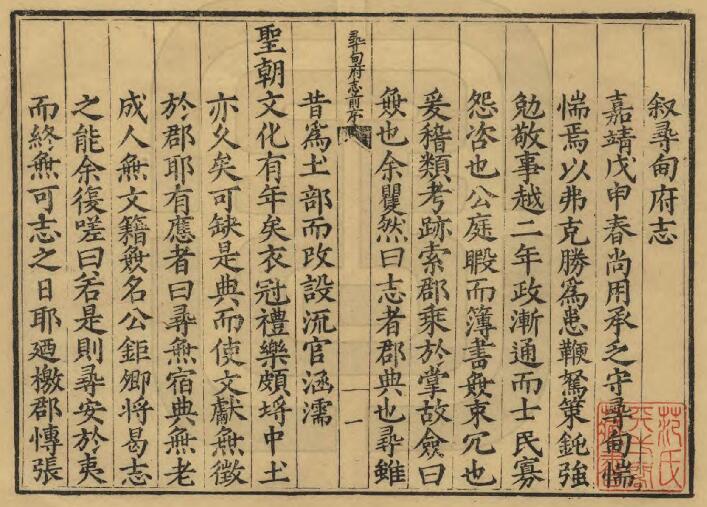 叙尋甸府志
嘉靖戊申春尚用承乏守尋甸惴
惴焉以弗克勝爲患鞭駑策鈍強
勉敬事越二年政漸通而士民寡
怨咨也公庭暇而簿書無束冗也
爰稽類考跡索郡乘於掌故僉曰
無也余矍然曰志者郡典也尋雖
昔爲土部而改設流官涵濡
尋甸府志前序
一
聖朝文化有年矣衣冠禮樂頗埒中土
亦久矣可缺是典而使文獻無徵
於郡耶有應者曰尋無宿典無老
成人無文籍無名公鉅卿將曷志
之能余復嗟曰若是則尋安於夷
而終無可志之日耶廼檄郡愽張
范氏天一閣藏書